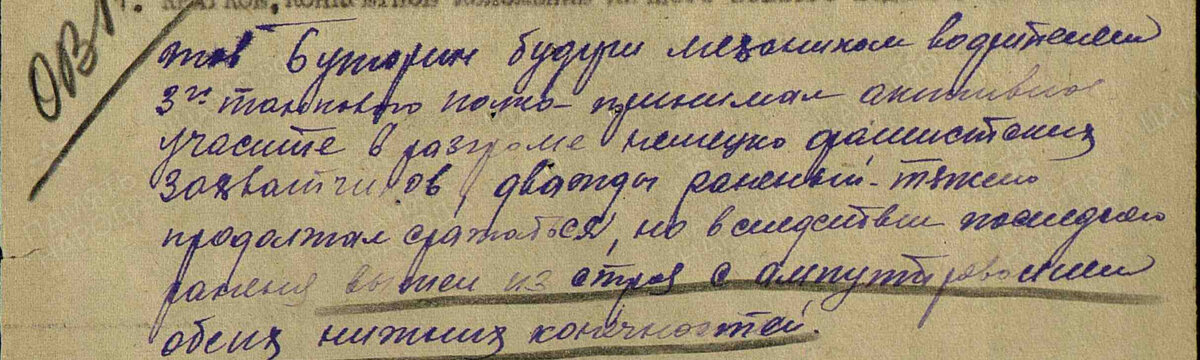 1. КРАТКОЕ, КОНКРЕТНОЕ ИЗЛОЖЕНИЕ ЛИЧНОГО БОЕВОГО
ОВ
тов Буторин будучи механиком водителем
3го танкового полка принимал активное
участие в разгроме немецко фашистских
захватчиков, дважды раненый тяжело
продолжал сражаться, но вследствии последнего
раненя вышел из строя с ампутированием
обеих нижних конечностей.